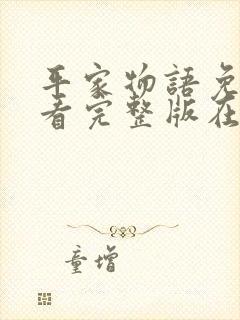 平家物語免
看完整版在
童增